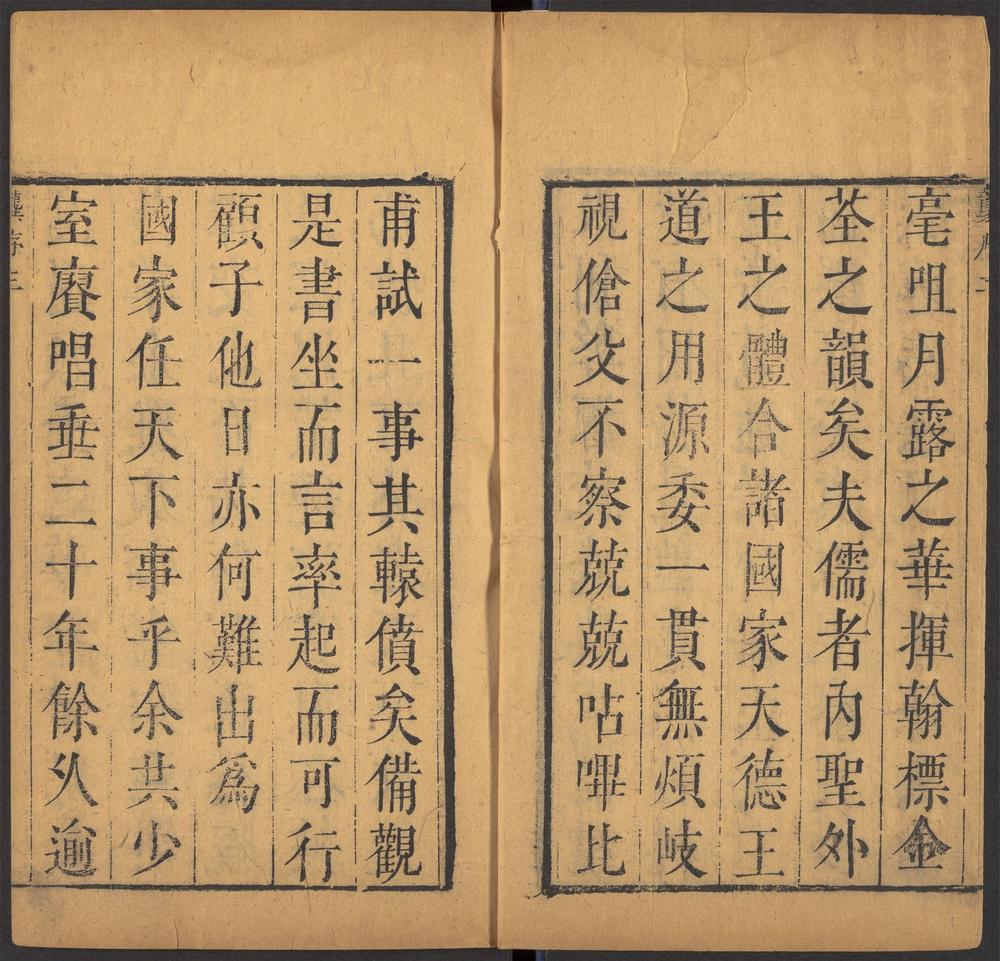 毫咀月露之華揮翰標金
荃之韻矣夫儒者內聖外
王之體合諸國家天德王
道之用源委一貫無煩岐
視傖父不察兢兢呫嗶比
甫試一事其轅僨矣備觀
是書坐而言率起而可行
顧子他日亦何難出爲
國家任天下事乎余共少
室賡唱垂二十年餘久逾